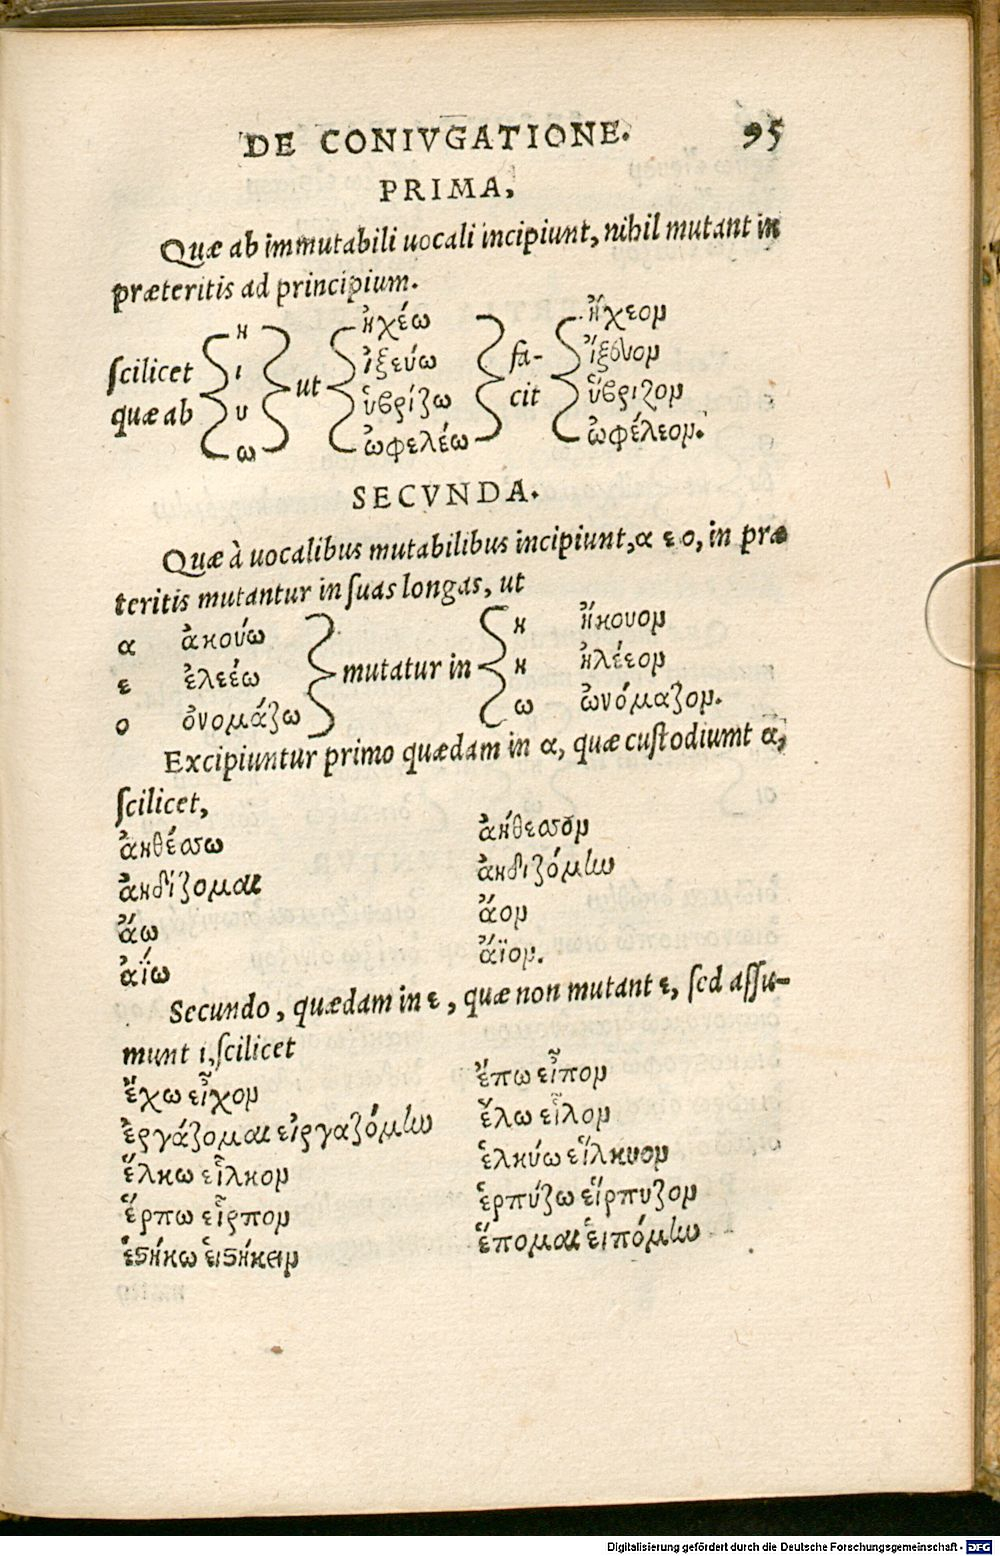 DE CONIVGATIONE. 95
PRIMA,
Quæ ab immutabili uocali incipiunt, nihil mutant in
præteritis ad principium.
η ἠχέω ἤχεον
ſcilicet ι ἰξεύω fa- ἴξευον
ut
quæ ab υ ὑβρίζω cit ὕβριζον
ω ὠφελέω ὠφέλεον.
SECVNDA.
Quæ à uocalibus mutabilibus incipiunt, α ε ο, in præ
teritis mutantur in ſuas longas, ut
α ἀκούω η ἤκουον
ε ἐλεέω mutatur in η ἠλέεον
ο ὀνομάζω ω ὠνόμαζον.
Excipiuntur primo quædam in α, quæ cuſtodiumt α,
ſcilicet,
ἀηθέσσω ἀήθεσσον
ἀηδίζομαι ἀηδιζόμην
ἄω ἄον
ἀΐω ἄϊον.
Secundo, quædam in ε, quæ non mutant ε, ſed aſſu-
munt ι, ſcilicet
ἔχω εἶχον ἔπω εἶπον
ἐργάζομαι εἰργαζόμην ἕλω εἷλον
ἕλκω εἷλκον ἑλκύω εἵλκυον
ἕρπω εἷρπον ἑρπύζω εἵρπυζον
ἑστήκω εἱστήκειν ἕπομαι εἱπόμην
Digitalisierung gefördert durch die Deutsche Forschungsgemeinschaft - DFG